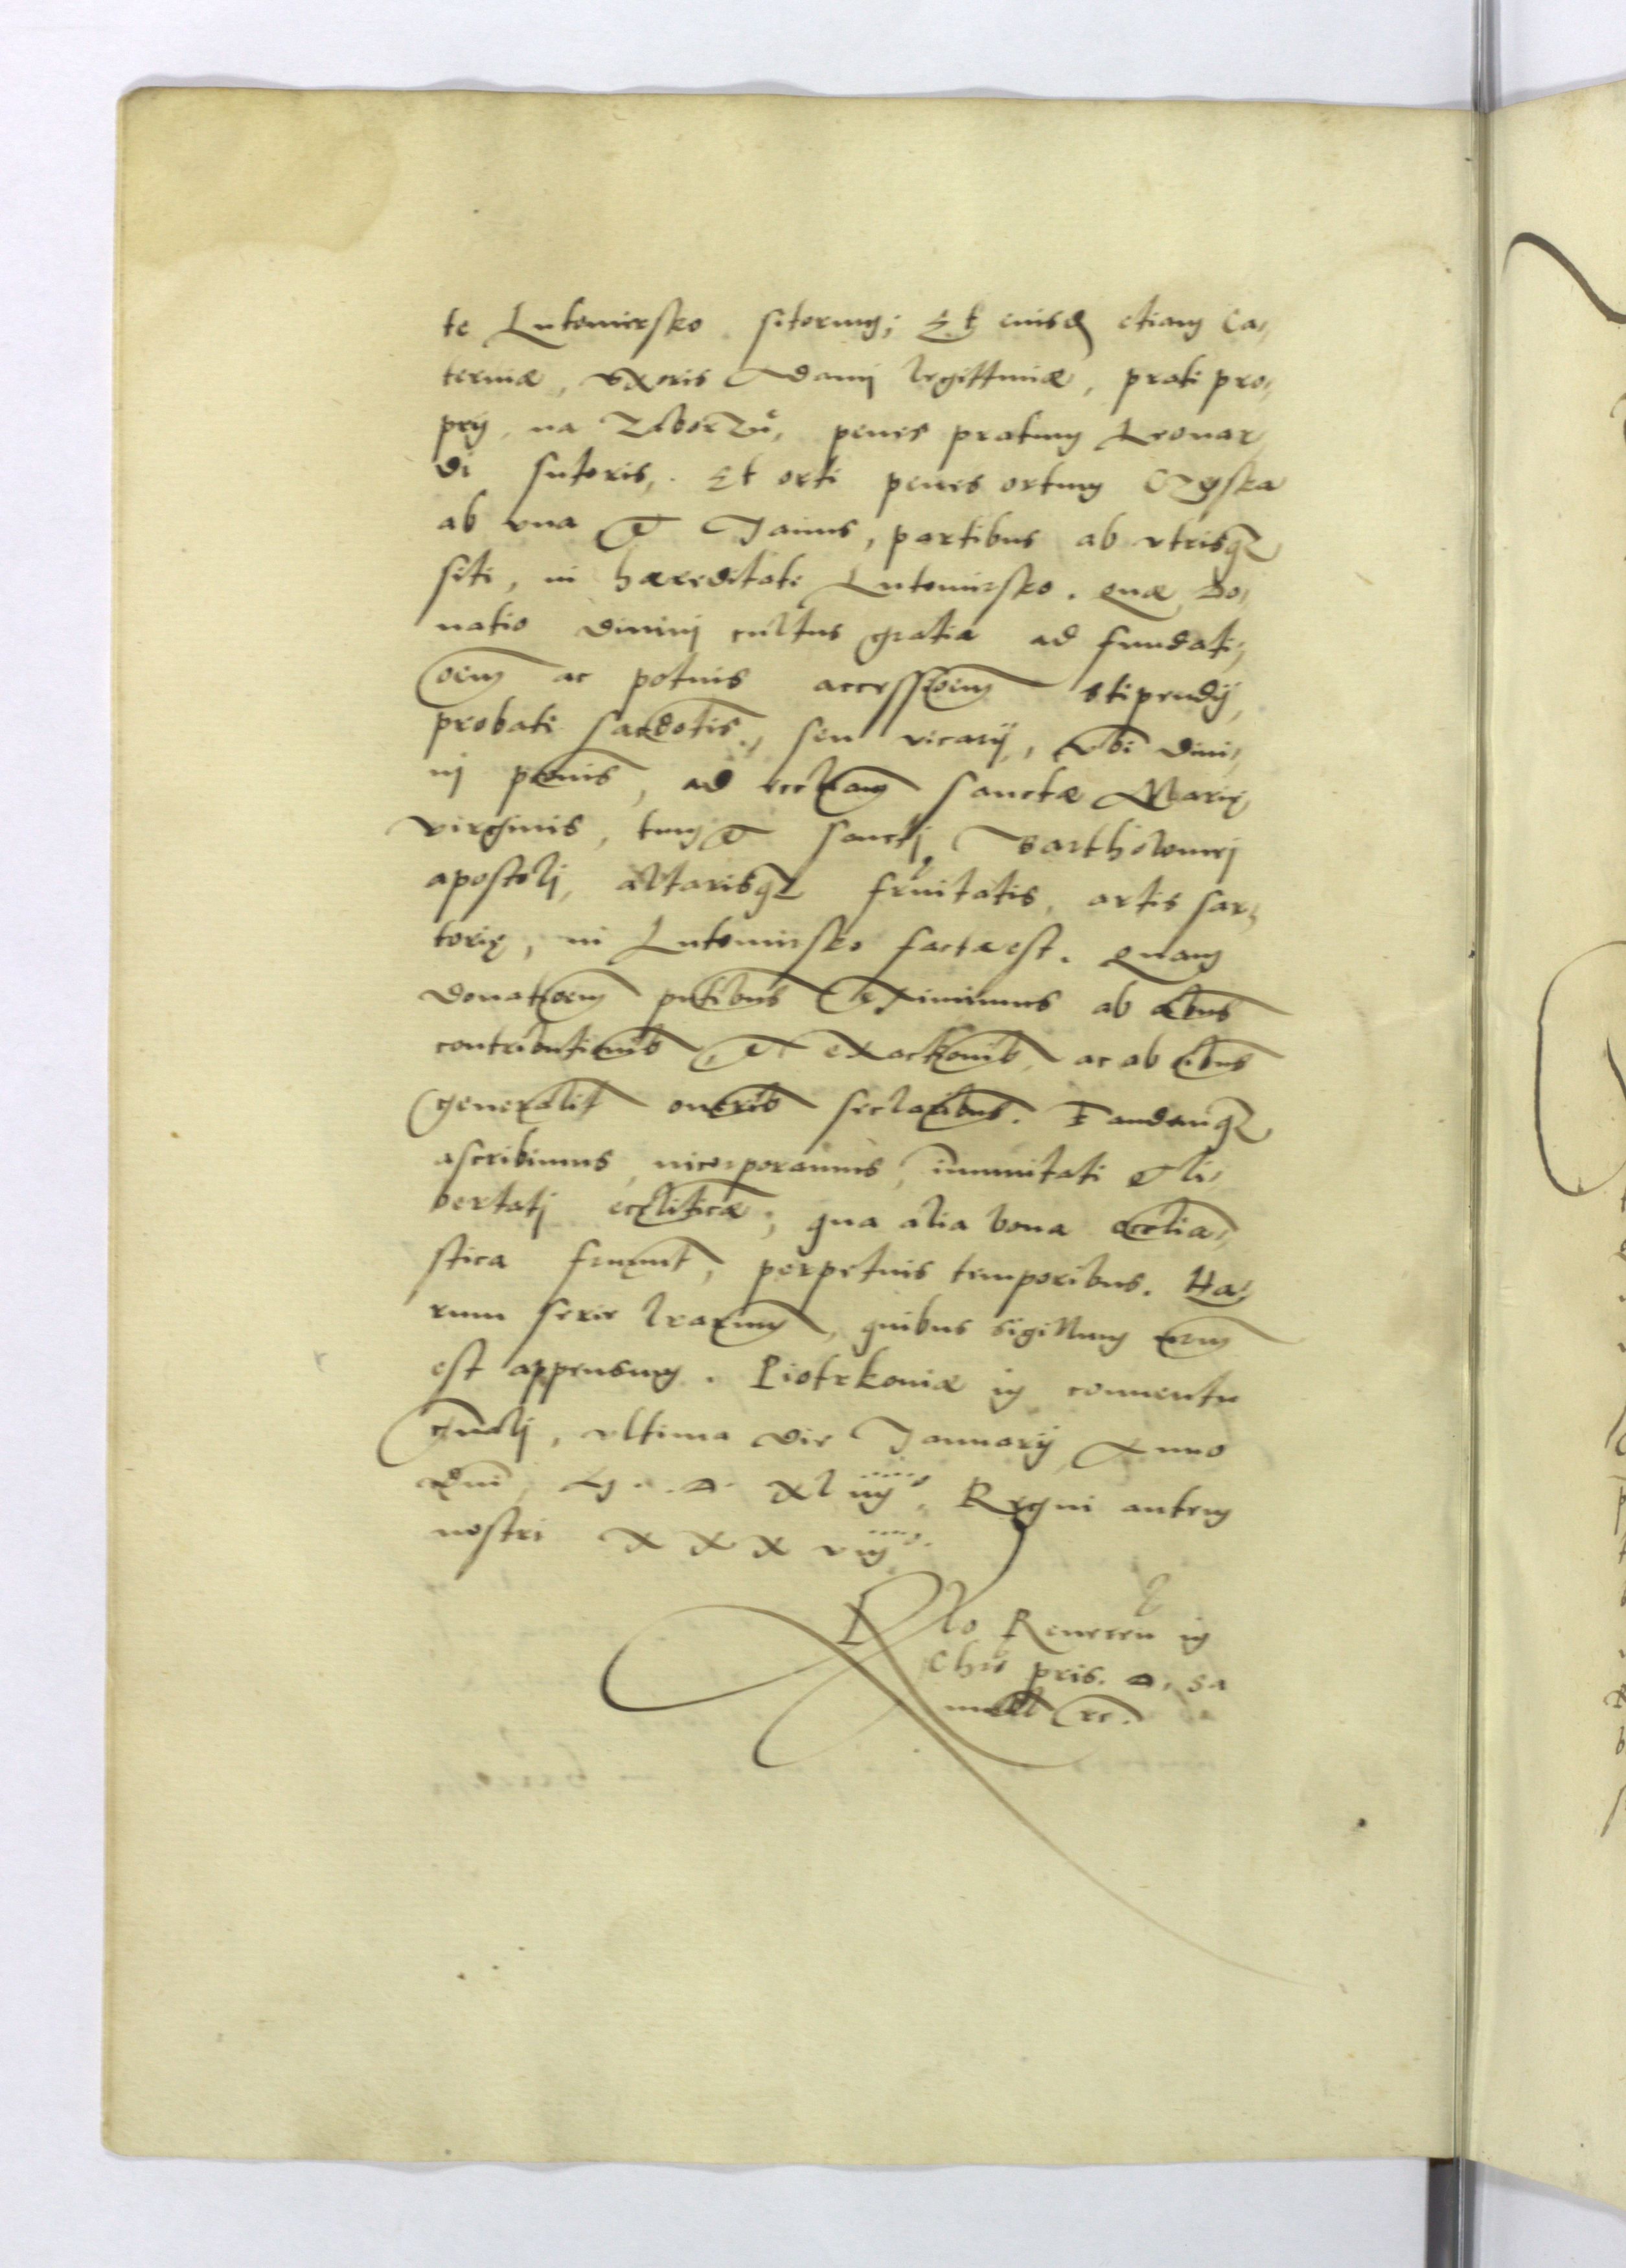 te Lutomiersko sitorum; Et eiusd etiam Ca,
terinæ, vxoris Adamj legittimæ, prati pro,
prÿ, na penes pratum Leonar,
di sutoris. Et orti penes ortum Czyska
ab vna et Janus, partibus ab vtrisq
siti, in hæreditate Lutomirsko. Quæ do,
natio diuinj cultus gratia ad fundati,
oem ac potius accessioem stipendÿ,
probati sacdotis, seu vicarÿ, vbi diui,
nj pemis, ad ecclam sanctæ Marię
virginis, tum et sanctj Bartholomej
apostolj, altarisq frnitatis, artis sar,
torię, in Lutomirsko facta est. Quam
donatioem pntibus eximimus ab oibus
contributionib et exactionib ac ab oibus
generalit onerib seclaribus. Eandemq
ascribimus, incorporamus, immunitati et li,
bertatj eccliticæ; qua alia bona ecclia,
stica fruunt, perpetuis temporibus. Ha,
rum serie lrarum, quibus sigillum nrm
est appensum. Piotrkoniæ in conuentu
gnalj, vltima die Januarÿ Anno
dni M. D. xliiij°. Regni autem
nostri xxxviij°.
Rlo Reueren in
Chro pris. D. Sa
muelis rc.